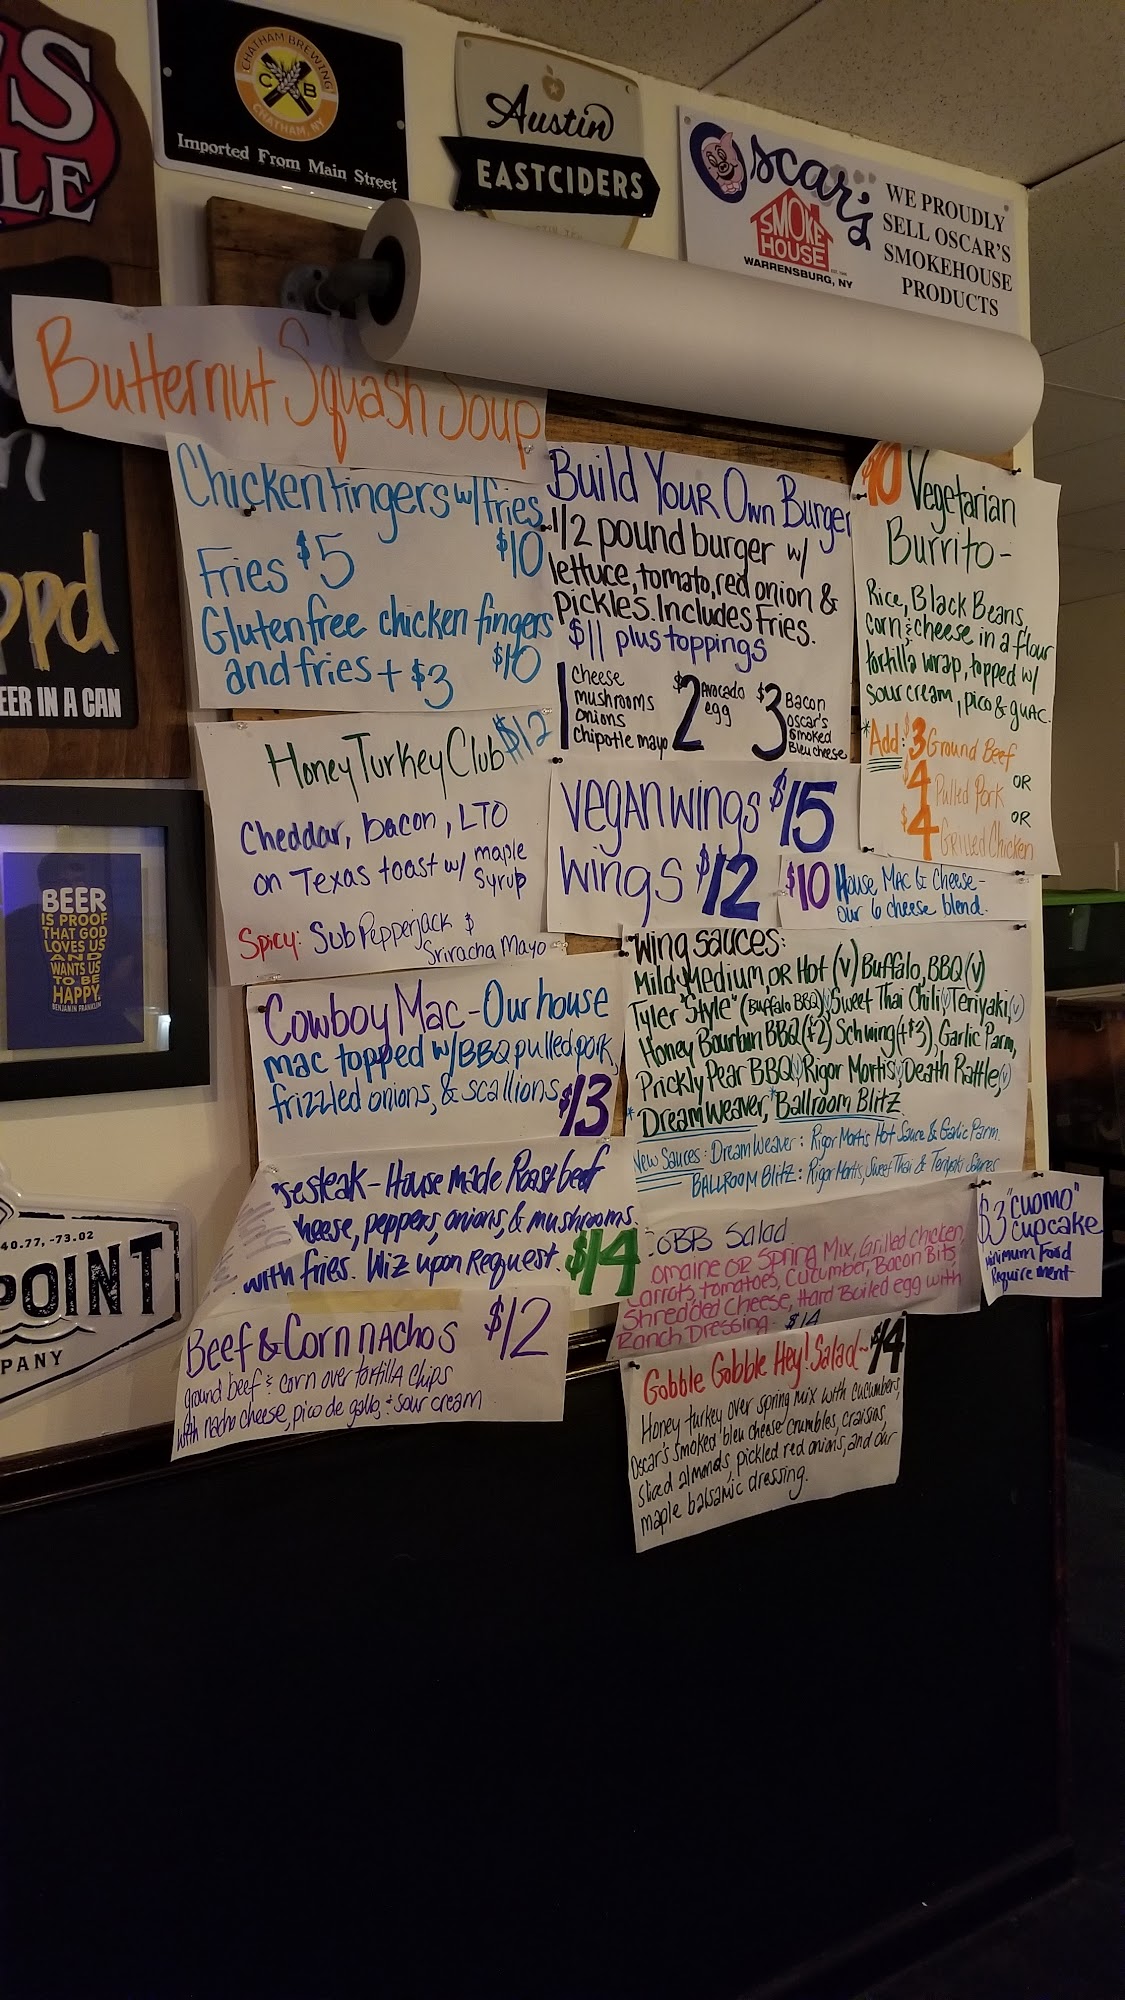 S
LE
CHATHAM BREWING
C B
CHATHAM, NY
Imported From Main Street
Austin
EASTCIDERS
Oscar's
SMOKE
HOUSE
WARRENSBURG, NY
WE PROUDLY
SELL OSCAR'S
SMOKEHOUSE
PRODUCTS
Butternut Squash Soup
ppd
BEER IN A CAN
Chicken fingers w/fries
$10
Fries $5
Gluten free chicken fingers
and fries + $3 $10
Build Your Own Burger
1/2 pound burger w/
lettuce, tomato, red onion &
pickles. Includes Fries.
$11 plus toppings
1 cheese
mushrooms
onions
Chipotle mayo
$2 Avocado
egg
$3 Bacon
Oscar's
Smoked
Bleu cheese
$10 Vegetarian
Burrito-
Rice, Black Beans,
corn & cheese in a flour
tortilla wrap, topped w/
sour cream, pico & guac.
*Add: $3 Ground Beef
OR
$4 Pulled Pork
OR
$4 Grilled Chicken
Honey Turkey Club $12
Cheddar, bacon, LTO
on Texas toast w/ maple
syrup
Spicy: Sub Pepperjack &
Sriracha Mayo
Vegan wings $15
Wings $12
$10 House Mac & Cheese-
our 6 cheese blend.
BEER
IS PROOF
THAT GOD
LOVES US
AND
WANTS US
TO BE
HAPPY.
BENJAMIN FRANKLIN
Cowboy Mac - Our house
mac topped w/BBQ pulled pork,
frizzled onions, & scallions $13
Wing Sauces:
Mild, Medium, or Hot (v) Buffalo, BBQ (v)
Tyler "Style" (Buffalo BBQ)(v) Sweet Thai Chili(v) Teriyaki,(v)
Honey Bourbon BBQ(+$2) Schwing(+$3), Garlic Parm,
Prickly Pear BBQ(v) Rigor Mortis(v) Death Rattle,(v)
*Dream Weaver, *Ballroom Blitz
New Sauces: Dream Weaver: Rigor Mortis Hot Sauce & Garlic Parm.
BALLROOM BLITZ: Rigor Mortis, Sweet Thai & Teriyaki Sauces
sesteak - House Made Roast beef
cheese, peppers, onions, & mushrooms.
with fries. Wiz upon Request. $14
COBB Salad
omaine or Spring Mix, Grilled chicken,
Carrots, tomatoes, Cucumber, Bacon Bits,
Shredded Cheese, Hard Boiled egg with
Ranch Dressing. $14
$3 "Cuomo"
Cupcake
minimum Food
Requirement
40.77, -73.02
POINT
PANY
Beef & Corn nachos $12
ground beef & corn over tortilla chips
with nacho cheese, pico de gallo & sour cream
Gobble Gobble Hey! Salad~ $14
Honey turkey over spring mix with cucumbers,
Oscar's smoked bleu cheese crumbles, craisins,
sliced almonds, pickled red onions, and our
maple balsamic dressing.